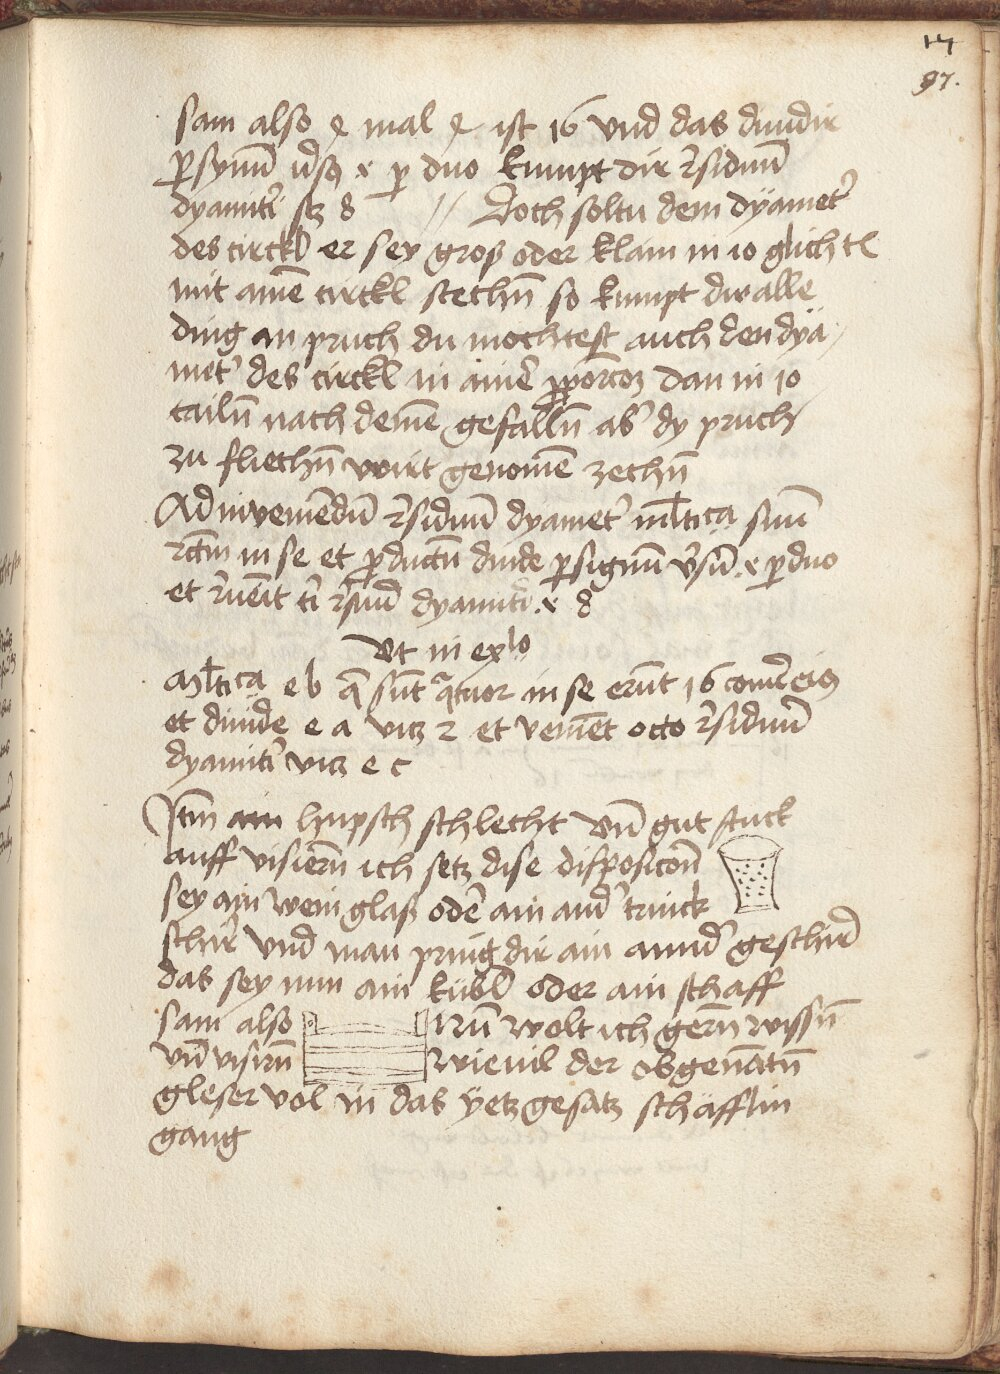 14
97.
sam also 4 mal 4 ist 16 vnd das diuidir
p signū v̄sꝫ x p duo kumpt dir r̄siduū
dyamitr̄ sꝫ 8 // Doch soltu dem dyameter̄
des circkl er sey groß oder klain in 10 glich tl
mit ainē circkl stechn̄ so kumpt dir alle
ding an pruch du mochtest auch den dya
met' des circkl in ainer̄ ꝓporcoꝫ dan in 10
tailn̄ nach deinē gefalln̄ ab' dy pruch
zu fliechn̄ wirt genomē zechn̄
Ad inveniēdū r̄siduū dyamet' ml̄tica sinū
rctm̄ in se et ꝓductū diuide p signū v̄sū x p duo
et r̄ueīt ti r̄siduū dyamitr̄ x 8ª
Vt in exlo
Ml̄tica e b q̄ sūt quatuor in se erūt 16
et diuide e a vitꝫ 2 et veniēt octo r̄siduū
dyamitr̄ vitꝫ e c
Itm̄ ain hupsch schlecht vn̄ gut stuck
auff visiern̄ ich setꝫ dise disposicon̄
sey ain wein glaß oder̄ ain and' trinck
schir̄ vnd man pring dir ain annd' geschird
das sey nun ain kubl oder ain schaff
sam also Nū wolt ich gern̄ wissn̄
vn̄ visirn̄ wieuil der obgenātn̄
gleser vol in das yetꝫ gesatꝫ schäfflin
gang